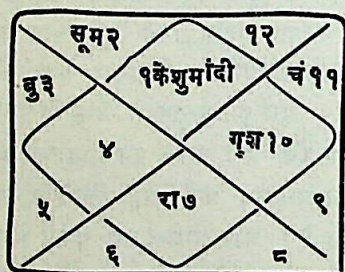 सूम२ १२
१केशुमांदी
बु३ चं११
४ गुश१०
५ रा७ ९
६ ८